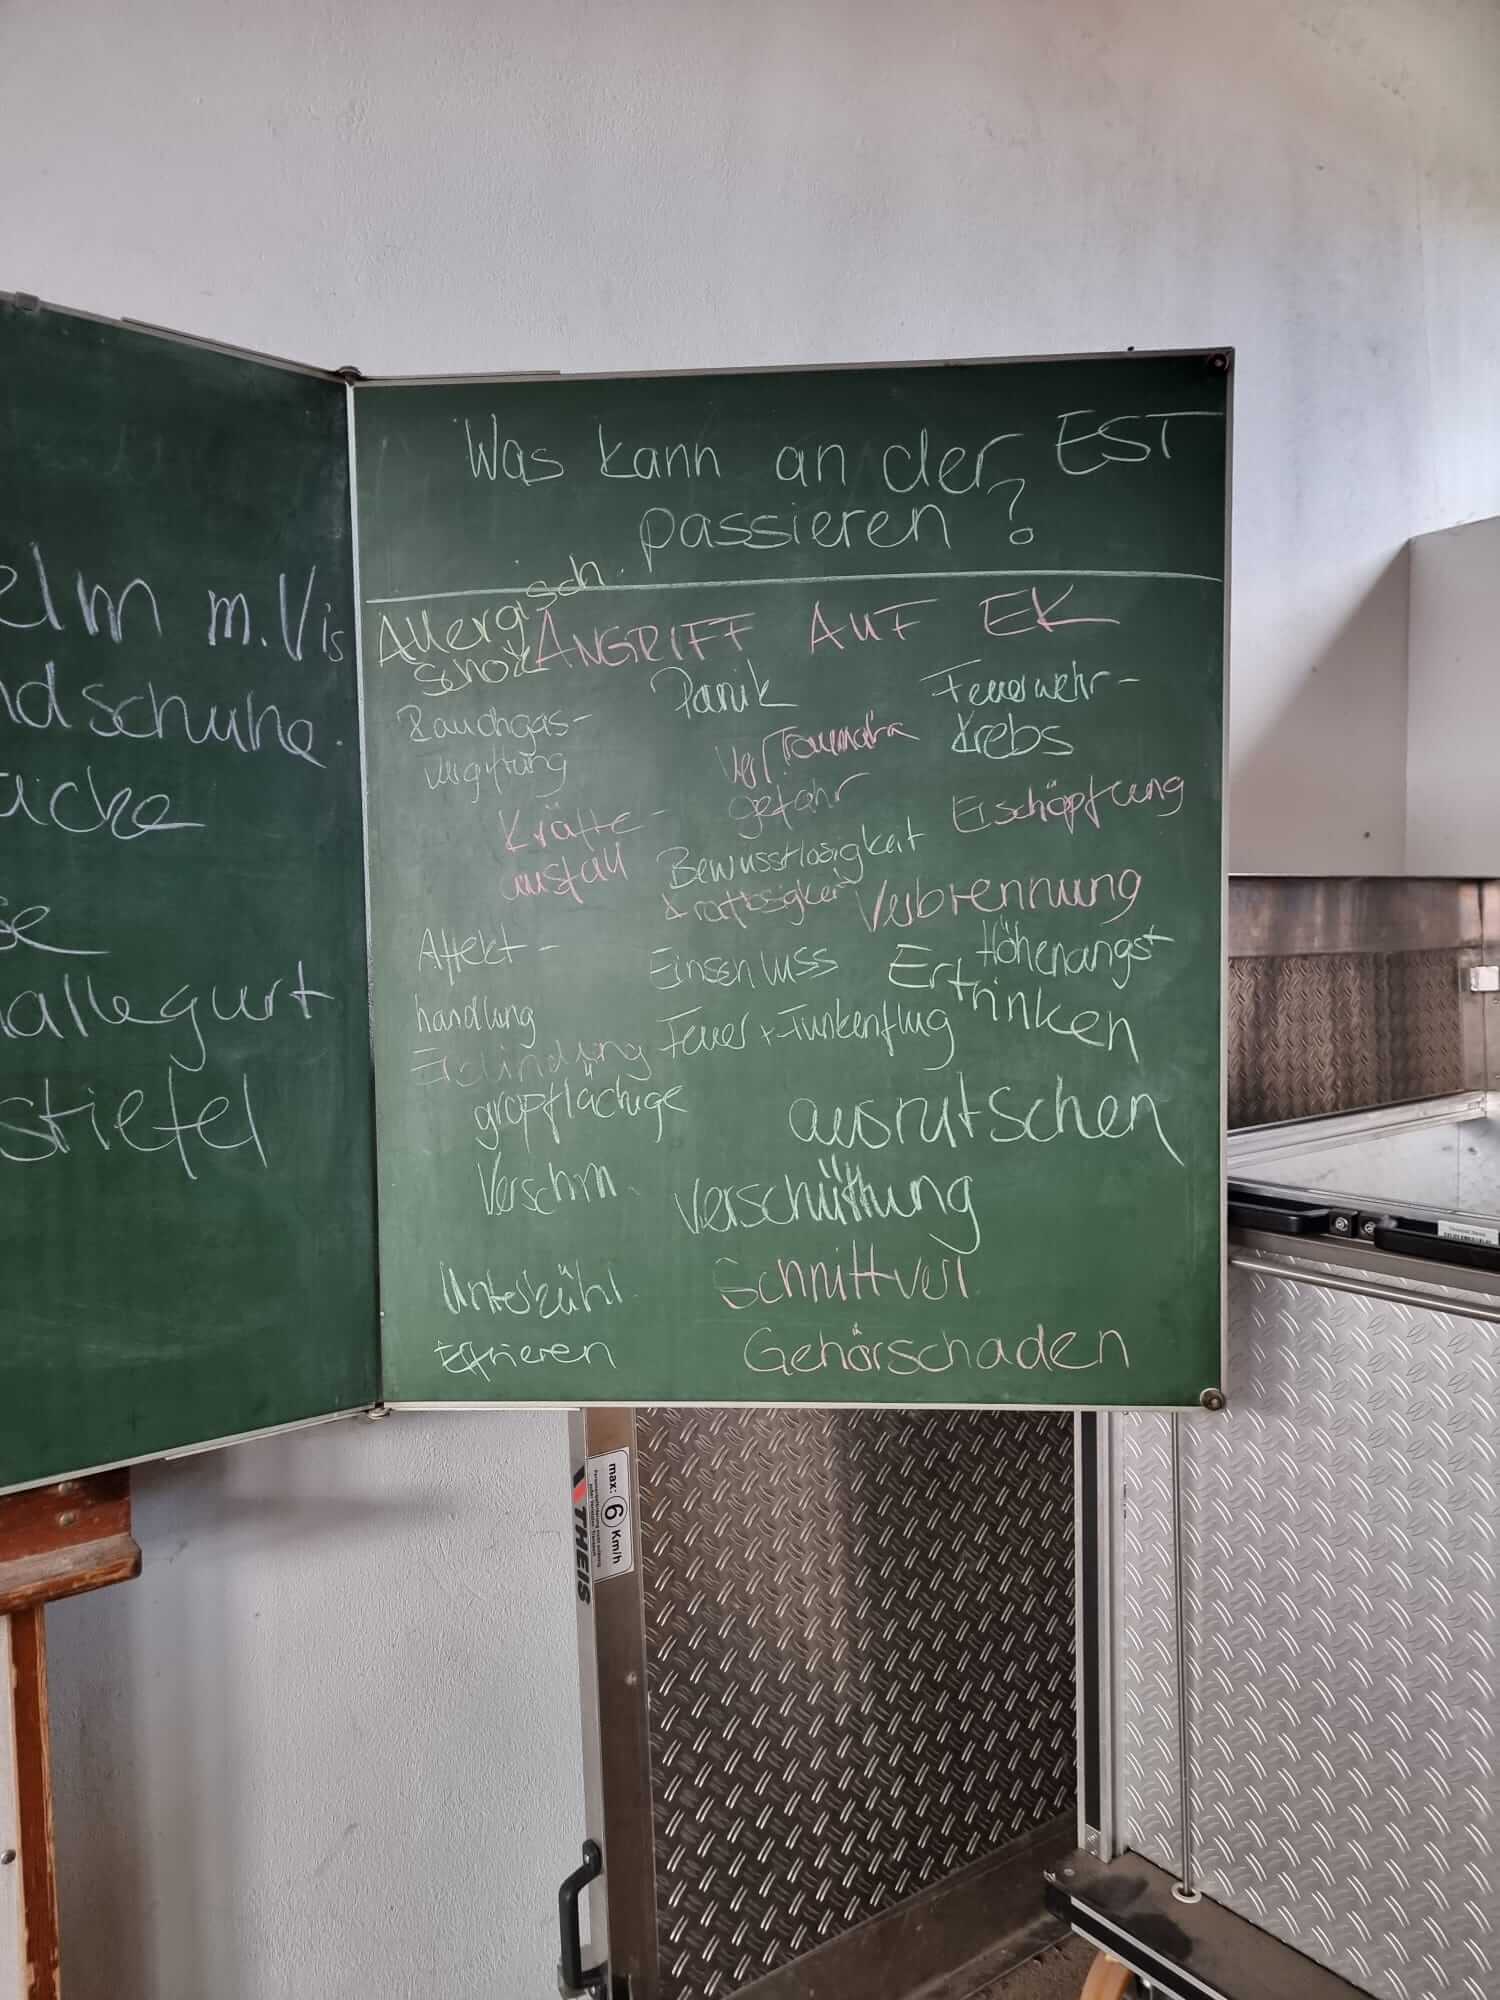 elm m. Vis
ndschuhe.
ücke
se
allegurt
stiefel
Was kann an der EST
passieren?
Allergisch.
Schock
ANGRIFF AUF EK
Panik
Feuerwehr-
krebs
Rauchgas-
vergiftung
Verl. Traumata
gefahr
Kräfte-
ausfall
Erschöpfung
Bewusstlosigkeit
Kraftlosigkeit
Verbrennung
Affekt-
handlung
Einschluss
Höhenangst
Ertrinken
Feuer + Funkenflug
Erblindung
großflächige
Verschm.
ausrutschen
Verschüttung
Unterkühl.
Schnittverl.
Erfrieren
Gehörschaden
max: 6 Km/h
THEIS